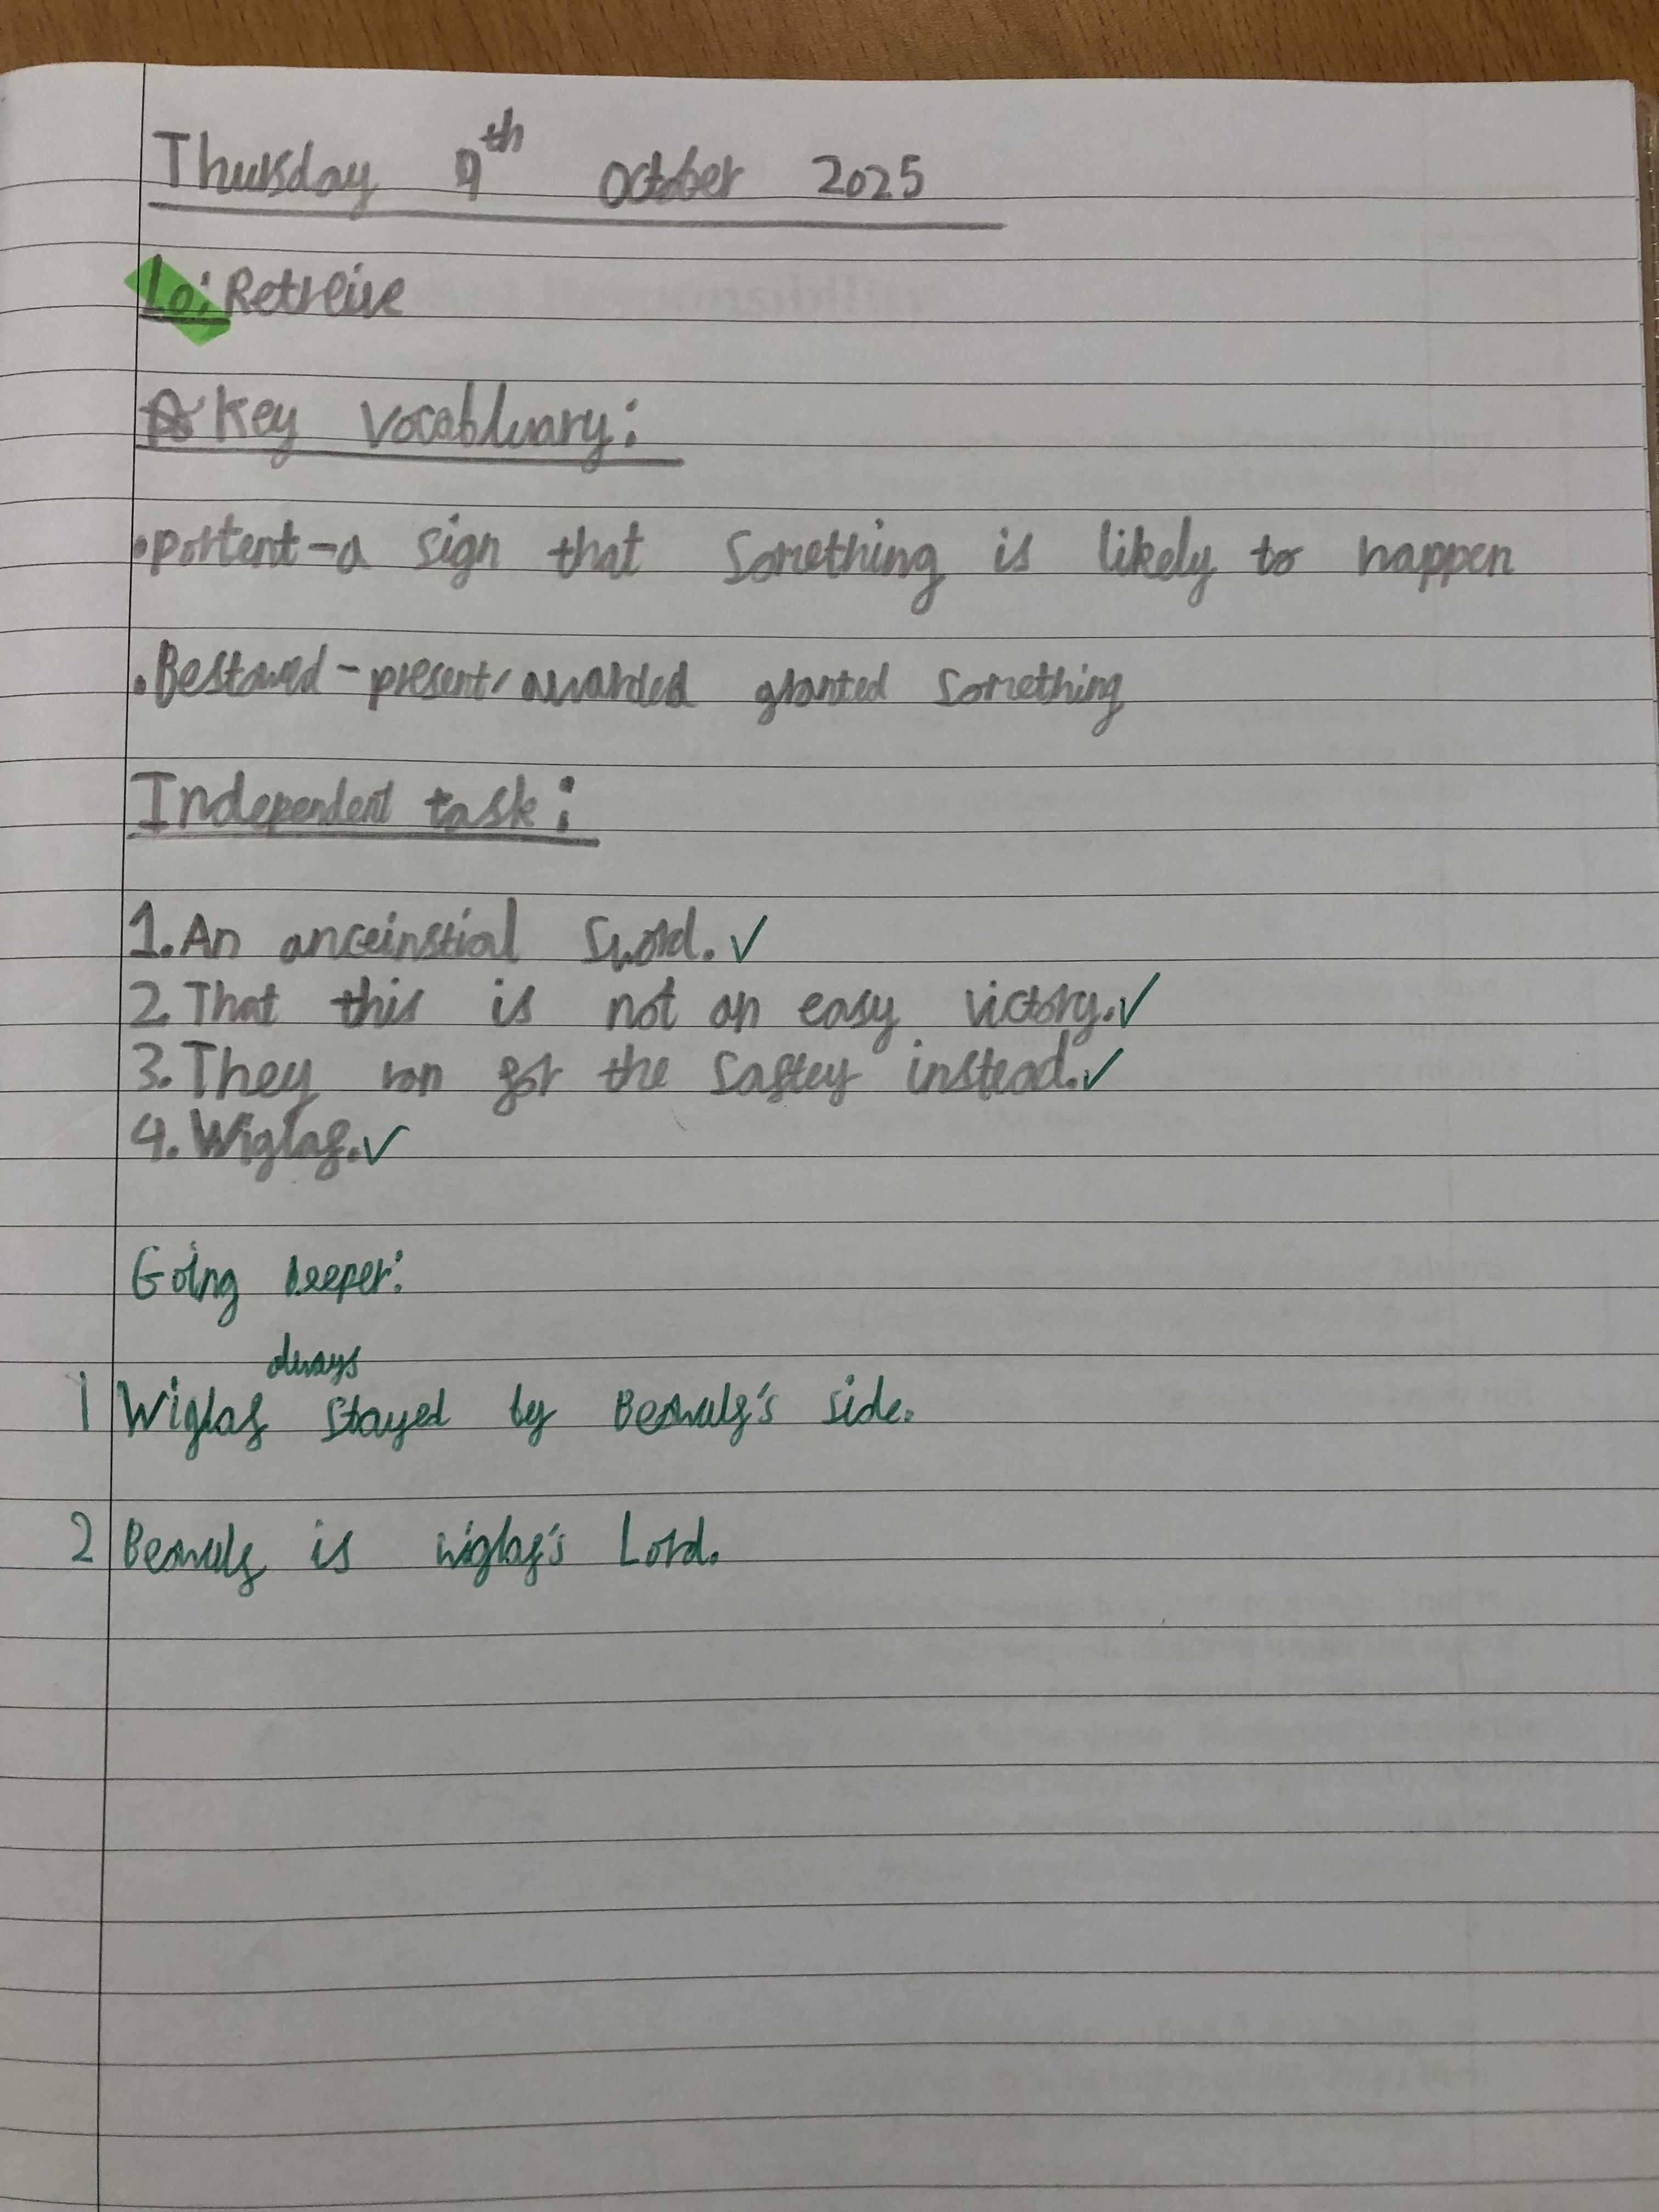 Thursday 9th October 2025
Lo: Retreive
Key vocabluary:
•portent-a sign that something is likely to happen
•Bestowed-present/awarded granted something
Independent task:
1. An anceinstial sword. ✓
2. That this is not an easy victory. ✓
3. They ran for the saftey instead. ✓
4. Wiglaf. ✓
Going Deeper:
always
1 Wiglaf stayed by Beowulf's side.
2 Beowulf is wiglaf's Lord.